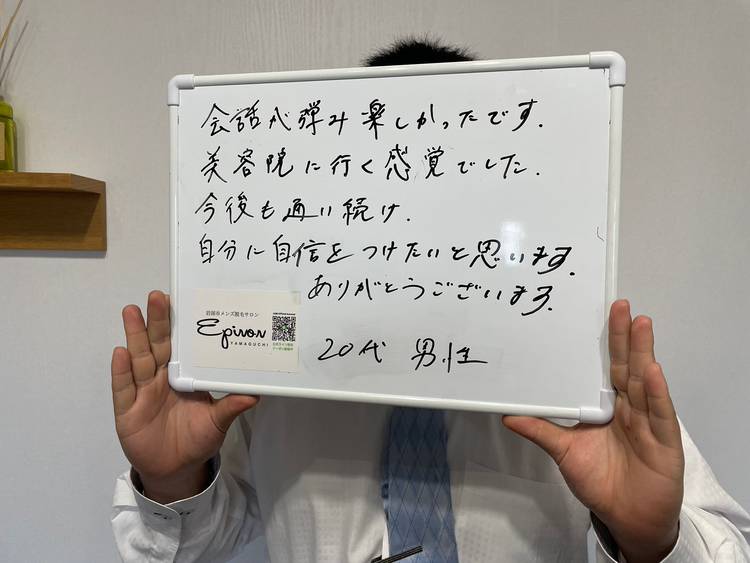 会話が弾み楽しかったです.
美容院に行く感覚でした.
今後も通い続け.
自分に自信をつけたいと思います.
ありがとうございます.
岩国市メンズ脱毛サロン
Epinon
YAMAGUCHI
20代 男性